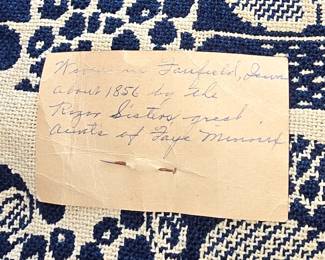 Woven in Fairfield, Iowa
about 1856 by the
Rizor Sisters great
aunts of Faye